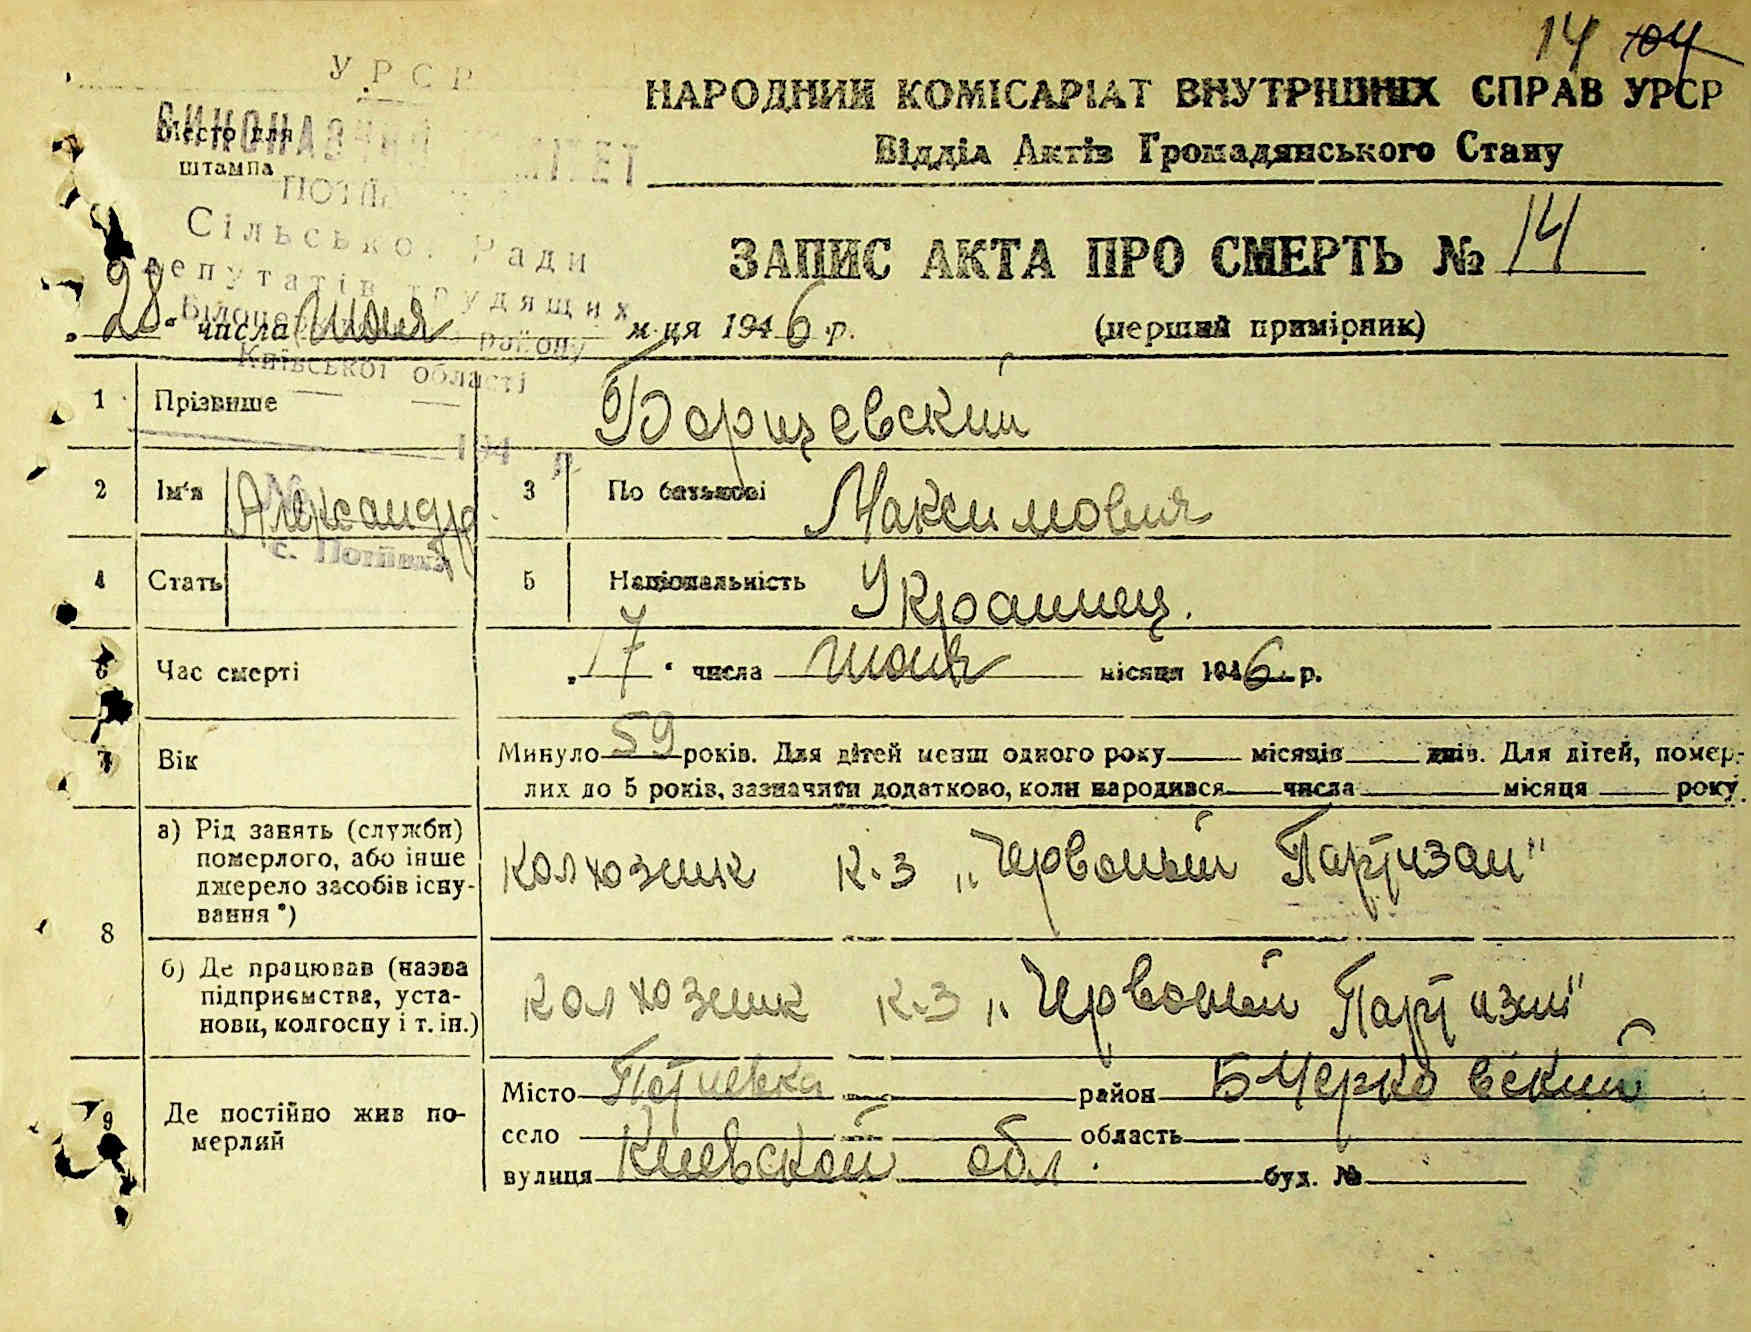 14 104
УРСР
ВИКОНАВЧИЙ КОМІТЕТ
Место для
штампа
НАРОДНИЙ КОМІСАРІАТ ВНУТРІШНІХ СПРАВ УРСР
Відділ Актів Громадянського Стану
Сільської Ради
депутатів трудящих
району
Київської області
ЗАПИС АКТА ПРО СМЕРТЬ № 14
"28" числа июня м-ця 1946 р. (перший примірник)
1 Прізвище Борщевский
194 р.
2 Ім'я Александр 3 По батькові Максимович
с. Потіївка
4 Стать 5 Національність Украинец.
6 Час смерті "17" числа июня місяця 1946 р.
7 Вік Минуло 59 років. Для дітей менш одного року місяців днів. Для дітей, помер-
лих до 5 років, зазначити додатково, коли народився числа місяця року
8 а) Рід занять (служби)
померлого, або інше
джерело засобів існу-
вання *)
колхозник к-з „Червоный Партизан"
б) Де працював (назва
підприємства, уста-
нови, колгоспу і т. ін.)
колхозник к-з „Червоный Партизан"
9 Де постійно жив по-
мерлий
Місто Потиевка район БЧерковский
село область
вулиця Киевской обл. буд. №